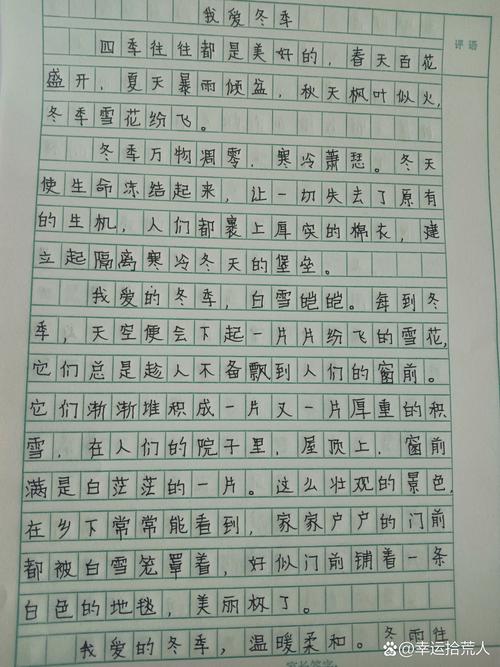 我爱冬季
评语
四季往往都是美好的，春天百花
盛开，夏天暴雨倾盆，秋天枫叶似火，
冬季雪花纷飞。
冬季万物凋零，寒冷萧瑟。冬天
使生命冻结起来，让一切失去了原有
的生机，人们都裹上厚实的棉衣，建
立起隔离寒冷冬天的堡垒。
我爱的冬季，白雪皑皑。每到冬
季，天空便会下起一片片纷飞的雪花，
它们总是趁人不备飘到人们的窗前。
它们渐渐堆积成一片又一片厚重的积
雪，在人们的院子里，屋顶上，窗前
满是白茫茫的一片。这么壮观的景色，
在乡下常常能看到，家家户户的门前
都被白雪笼罩着，好似门前铺着一条
白色的地毯，美丽极了。
我爱的冬季，温暖柔和。冬雨往
家长签字：
@幸运拾荒人